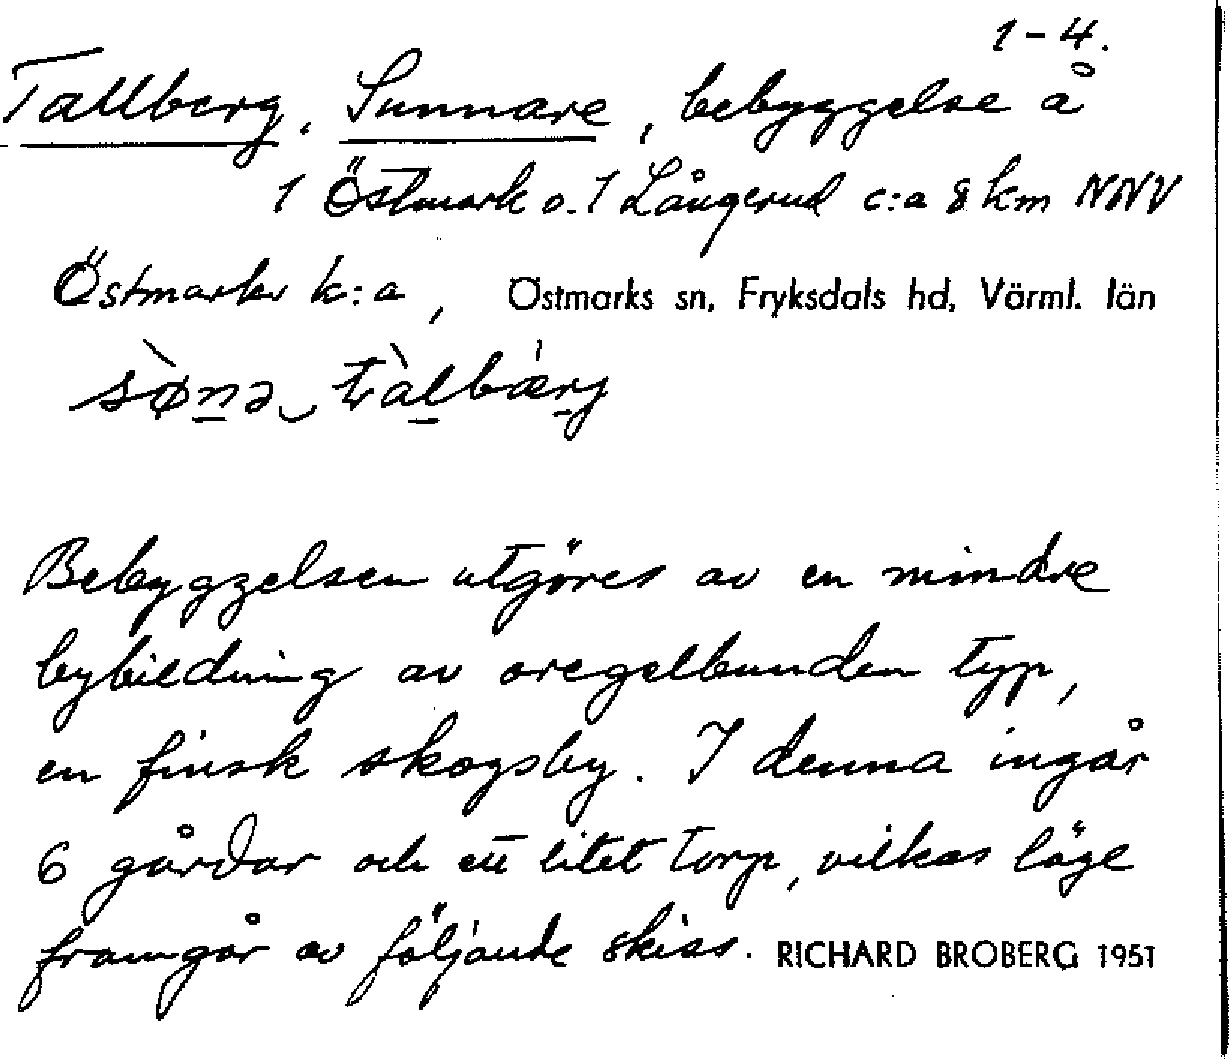 1-4.
Tallberg, Sunnare, bebyggelse å
1 Östmark o. 1 Långerud c:a 8 km NNV
Östmarks k:a, Östmarks sn, Fryksdals hd, Värml. län
sø̀nə tàlbærj
Bebyggelsen utgöres av en mindre
bybildning av oregelbunden typ,
en finsk skogsby. I denna ingår
6 gårdar och ett litet torp, vilkas läge
framgår av följande skiss. RICHARD BROBERG 1951